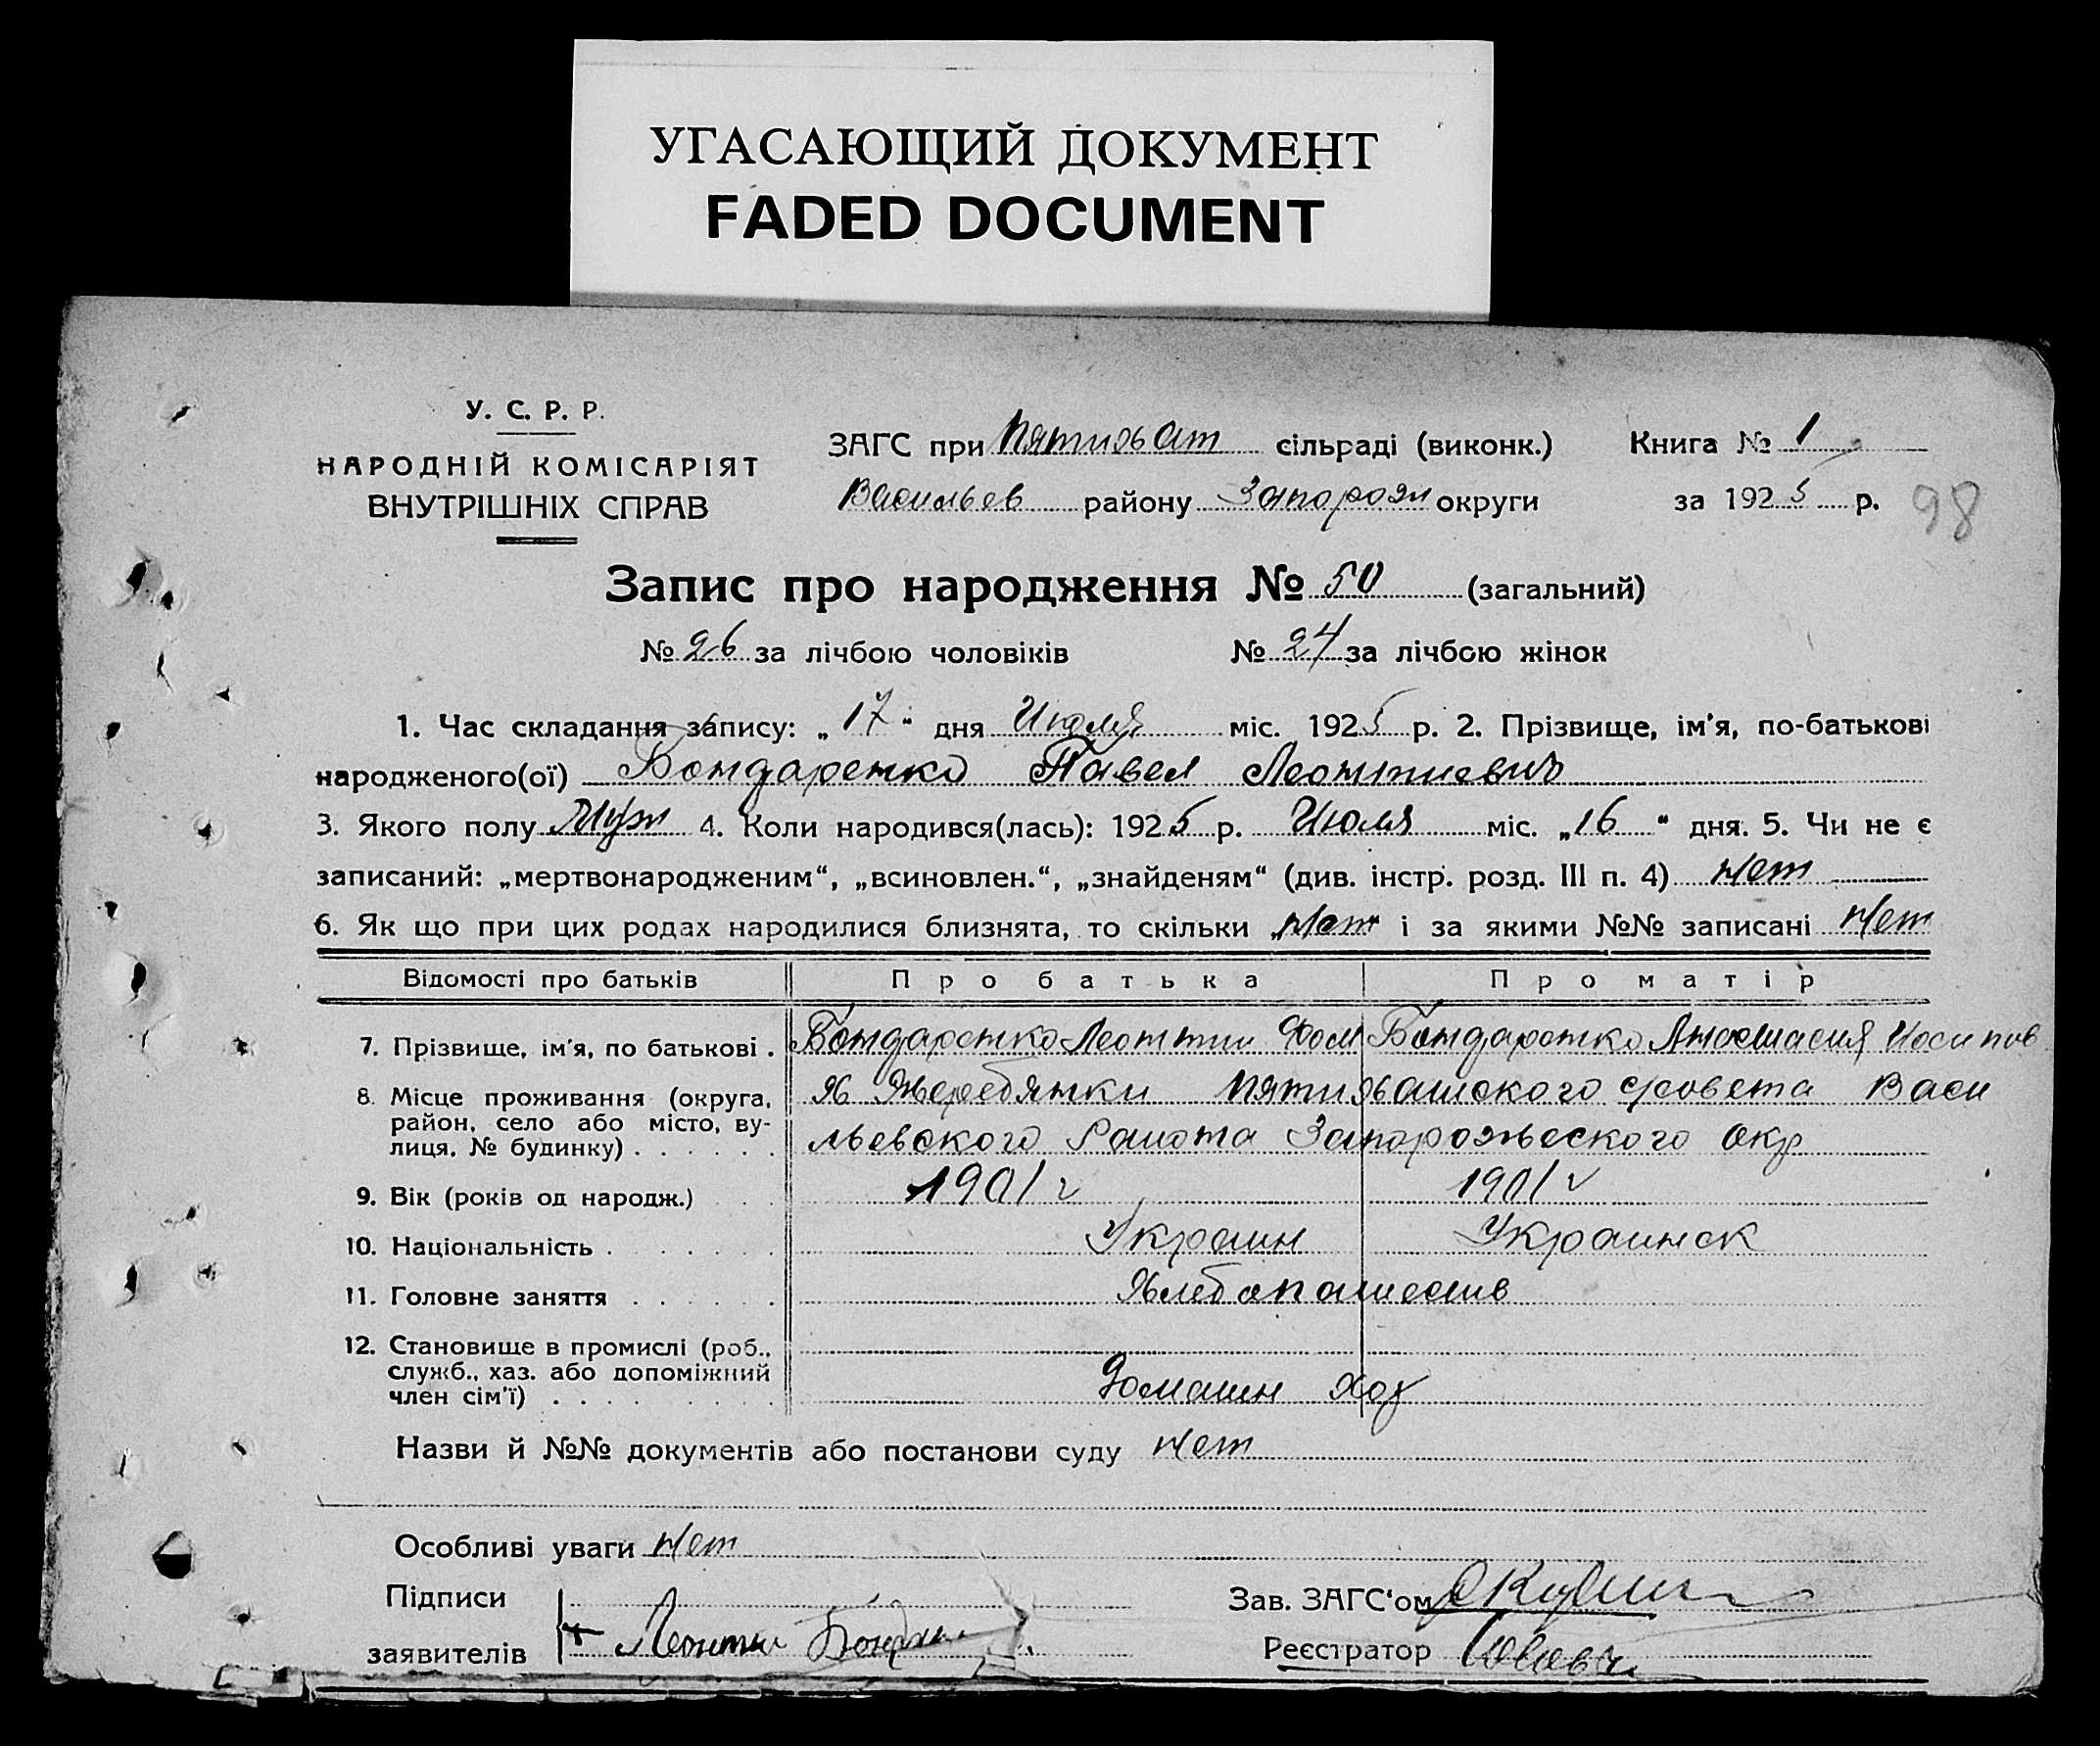 УГАСАЮЩИЙ ДОКУМЕНТ
FADED DOCUMENT
У. С. Р. Р.
НАРОДНІЙ КОМІСАРІЯТ
ВНУТРІШНІХ СПРАВ
ЗАГС при Пятихат сільраді (виконк.)
Васильев району Запорож округи
Книга № 1
за 1925 р.
98
Запис про народження № 50 (загальний)
№ 26 за лічбою чоловіків № 24 за лічбою жінок
1. Час складання запису: „17" дня Июля міс. 1925 р. 2. Прізвище, ім'я, по-батькові
народженого(ої) Бондаренко Павел Леонтиевич
3. Якого полу Муж 4. Коли народився(лась): 1925 р. Июля міс. „16" дня. 5. Чи не є
записаний: „мертвонародженим", „всиновлен.", „знайденям" (див. інстр. розд. III п. 4) нет
6. Як що при цих родах народилися близнята, то скільки „нет" і за якими №№ записані нет
Відомості про батьків Про батька Про матір
7. Прізвище, ім'я, по батькові . Бондаренко Леонтии Фом Бондаренко Анастасия Иосипов
8. Місце проживання (округа, район, село або місто, вулиця, № будинку) . . . . . .
х Жеребянки Пятихатского с/совета Васи
льевского Раиона Запорожьеского окр
9. Вік (років од народж.) 1901 г 1901 г
10. Національність . Украин Украинск
11. Головне заняття . . . . . . Хлебопашеств
12. Становище в промислі (роб., служб., хаз. або допоміжний член сім'ї) . . . . Домашн хоз
Назви й №№ документів або постанови суду нет
Особливі уваги нет
Підписи
заявителів Леонти
Зав. ЗАГС'ом
Реєстратор